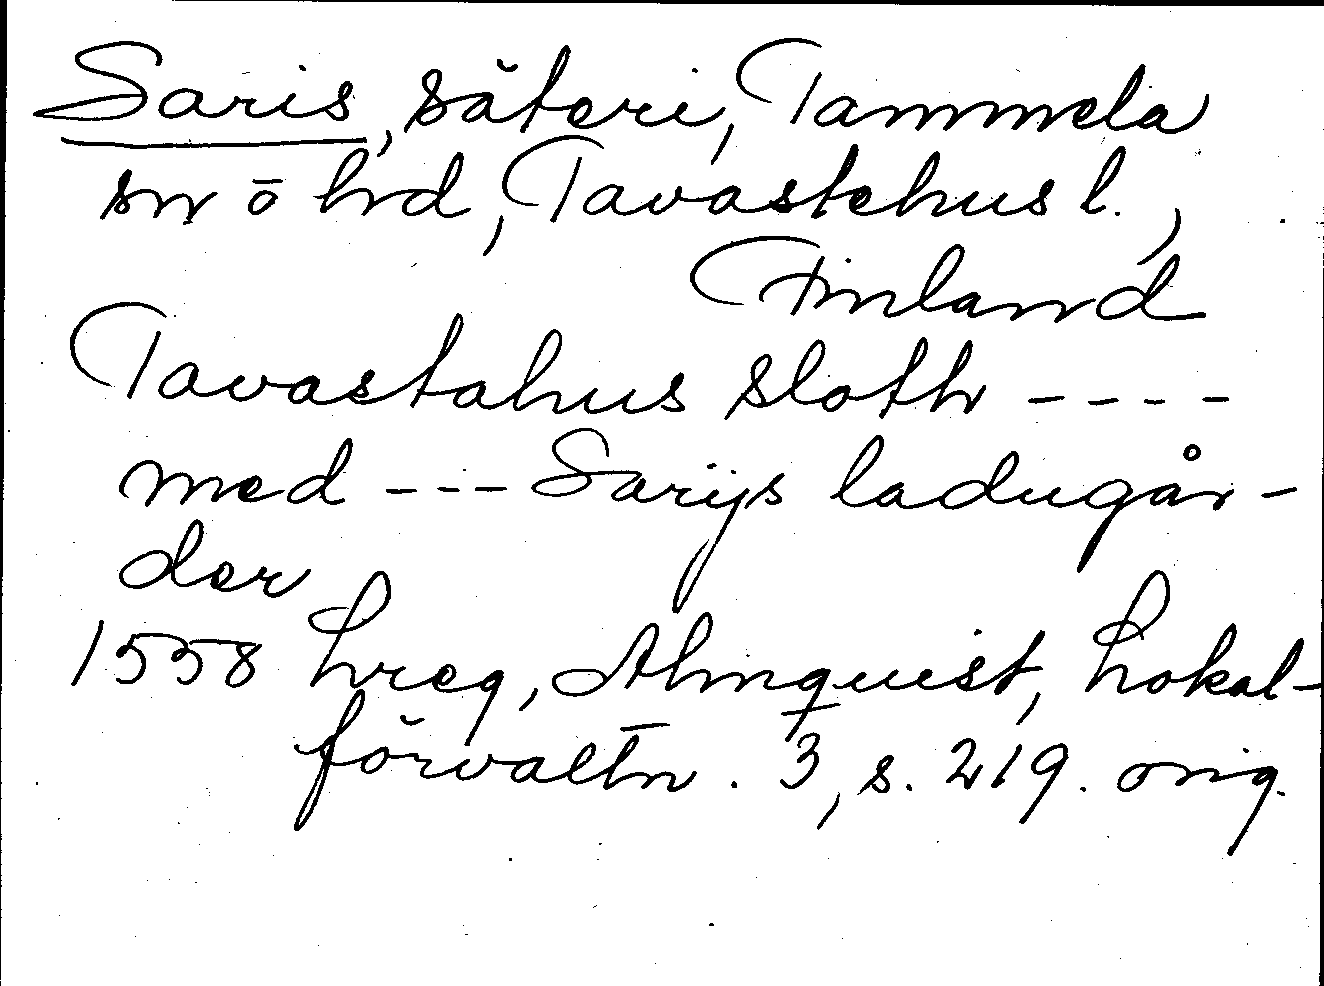 Saris, säteri, Tammela
sn ō hrd, Tavastehus l.,
Finland
Tavastahus sloth ----
med --- Sarijs ladugår-
der
1558 hreg, Almquist, Lokal-
förvaltn. 3, s. 219. orig.